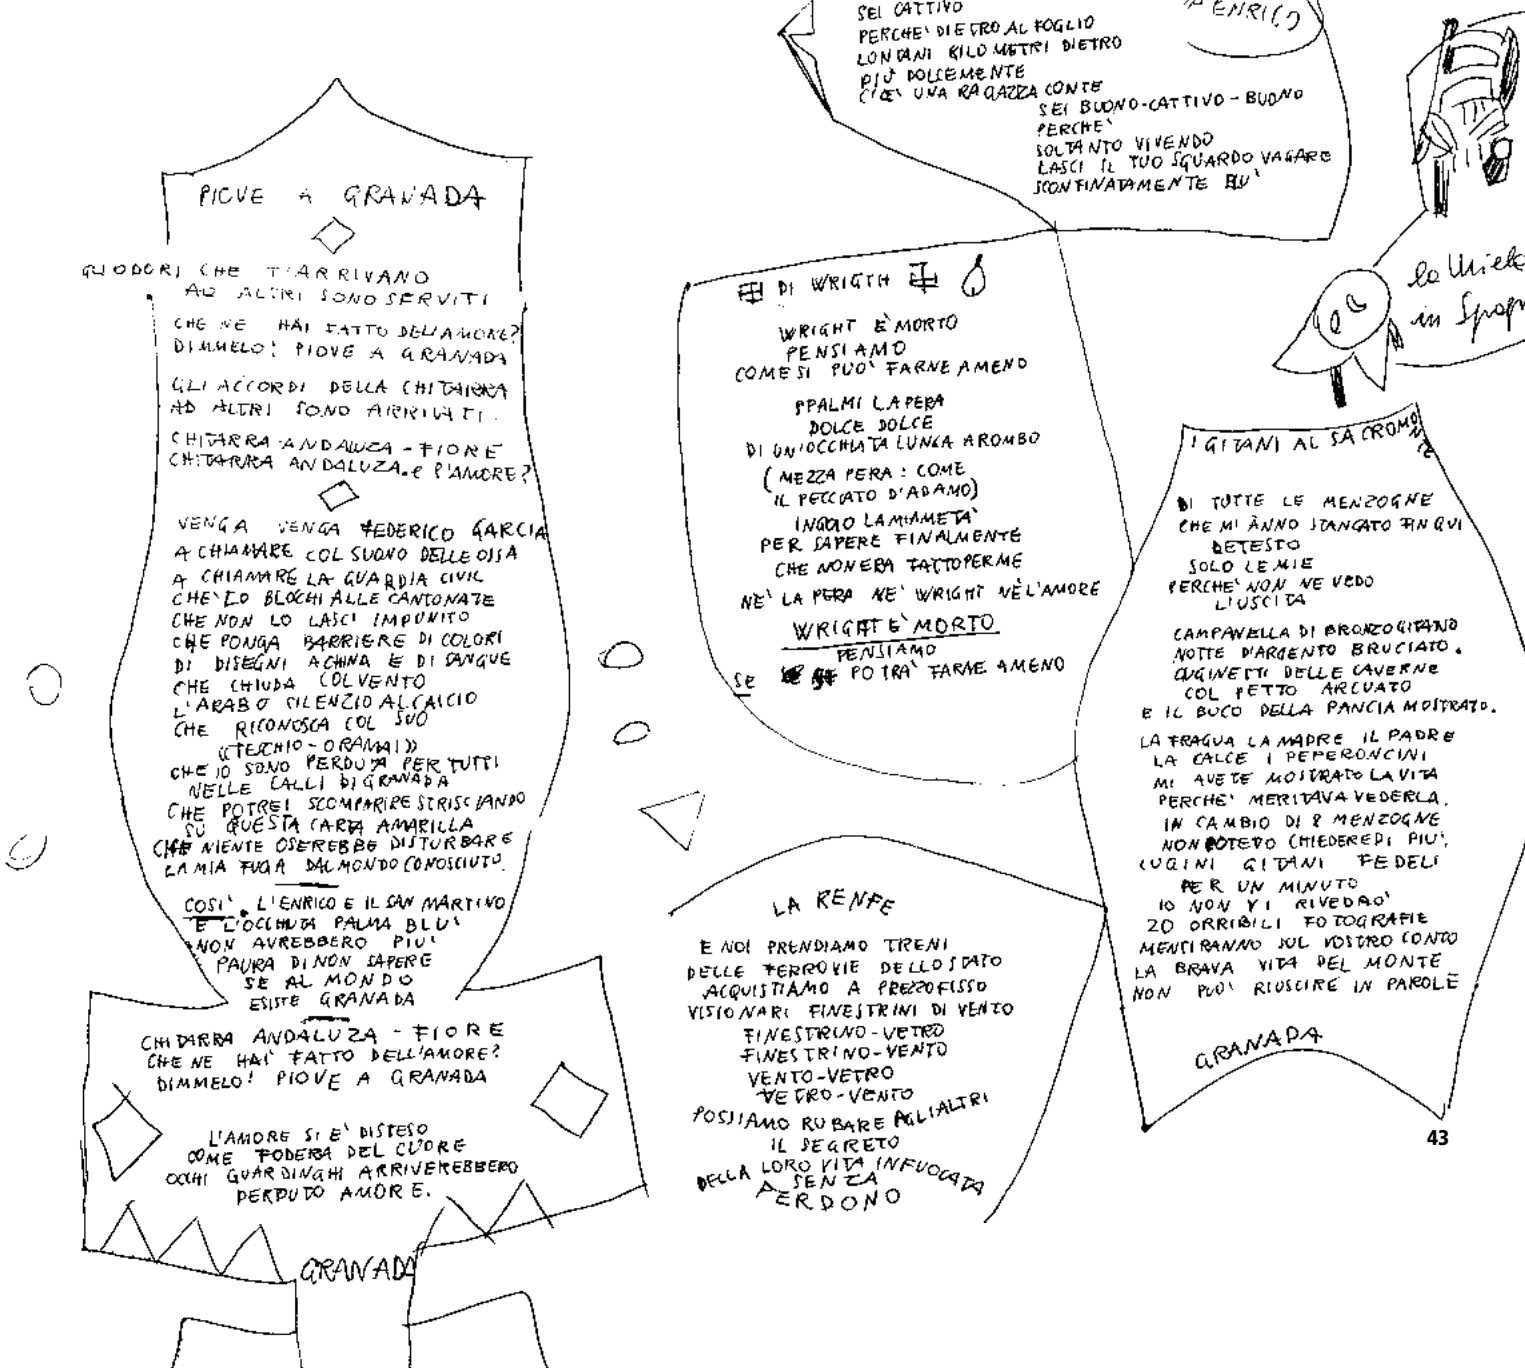 PIOVE A GRANADA
GLI ODORI CHE T'ARRIVANO
AD ALTRI SONO SERVITI
CHE NE HAI FATTO DELL'AMORE?
DIMMELO! PIOVE A GRANADA
GLI ACCORDI DELLA CHITARRA
AD ALTRI SONO ARRIVATI.
CHITARRA ANDALUZA - FIORE
CHITARRA ANDALUZA. e L'AMORE?
VENGA VENGA FEDERICO GARCIA
A CHIAMARE COL SUONO DELLE OSSA
A CHIAMARE LA GUARDIA CIVIL
CHE LO BLOCHI ALLE CANTONATE
CHE NON LO LASCI IMPUNITO
CHE PONGA BARRIERE DI COLORI
DI DISEGNI A CHINA E DI SANGUE
CHE CHIUDA COL VENTO
L'ARABO SILENZIO AL CALCIO
CHE RICONOSCA COL SUO
((TESCHIO - ORAMAI))
CHE IO SONO PERDUTA PER TUTTI
NELLE CALLI DI GRANADA
CHE POTREI SCOMPARIRE STRISCIANDO
SU QUESTA CARTA AMARILLA
CHE NIENTE OSEREBBE DISTURBARE
LA MIA FUGA DAL MONDO CONOSCIUTO.
COSI'. L'ENRICO E IL SAN MARTINO
E L'OCCHIUTA PALMA BLU'
NON AVREBBERO PIU'
PAURA DI NON SAPERE
SE AL MONDO
ESISTE GRANADA
CHITARRA ANDALUZA - FIORE
CHE NE HAI FATTO DELL'AMORE?
DIMMELO! PIOVE A GRANADA
L'AMORE SI E' DISTESO
COME FODERA DEL CUORE
OCCHI GUARDINGHI ARRIVEREBBERO
PERDUTO AMORE.
GRANADA
SEI CATTIVO
PERCHE' DIETRO AL FOGLIO
LONTANI KILOMETRI DIETRO
PIU' DOLCEMENTE
C'E' UNA RAGAZZA CON TE
SEI BUONO-CATTIVO-BUONO
PERCHE'
SOLTANTO VIVENDO
LASCI IL TUO SGUARDO VAGARE
SCONFINATAMENTE BLU'
ENRICO
DI WRIGTH
WRIGHT È MORTO
PENSIAMO
COME SI PUO' FARNE A MENO
SPALMI LA PERA
DOLCE DOLCE
DI UN'OCCHIATA LUNGA A ROMBO
(MEZZA PERA: COME
IL PECCATO D'ADAMO)
INGOIO LA MIA METÀ
PER SAPERE FINALMENTE
CHE NON ERA FATTO PER ME
NE' LA PERA NE' WRIGHT NÈ L'AMORE
WRIGHT E' MORTO
PENSIAMO
SE POTRA' FARNE A MENO
LA RENFE
E NOI PRENDIAMO TRENI
DELLE FERROVIE DELLO STATO
ACQUISTIAMO A PREZZO FISSO
VISIONARI FINESTRINI DI VENTO
FINESTRINO-VETRO
FINESTRINO-VENTO
VENTO-VETRO
VETRO-VENTO
POSSIAMO RUBARE AGLI ALTRI
IL SEGRETO
DELLA LORO VITA INFUOCATA
SENZA
PERDONO
la
in
I GITANI AL SACROMONTE
DI TUTTE LE MENZOGNE
CHE MI ÀNNO STANCATO FIN QUI
DETESTO
SOLO LE MIE
PERCHE' NON NE VEDO
L'USCITA
CAMPANELLA DI BRONZO GITANO
NOTTE D'ARGENTO BRUCIATO.
CUGINETTI DELLE CAVERNE
COL PETTO ARCUATO
E IL BUCO DELLA PANCIA MOSTRATO.
LA FRAGUA LA MADRE IL PADRE
LA CALCE I PEPERONCINI
MI AVETE MOSTRATO LA VITA
PERCHE' MERITAVA VEDERLA.
IN CAMBIO DI 8 MENZOGNE
NON POTEVO CHIEDERE DI PIU'.
CUGINI GITANI FEDELI
PER UN MINUTO
IO NON VI RIVEDRO'
20 ORRIBILI FOTOGRAFIE
MENTIRANNO SUL VOSTRO CONTO
LA BRAVA VITA DEL MONTE
NON PUO' RIUSCIRE IN PAROLE
GRANADA
43